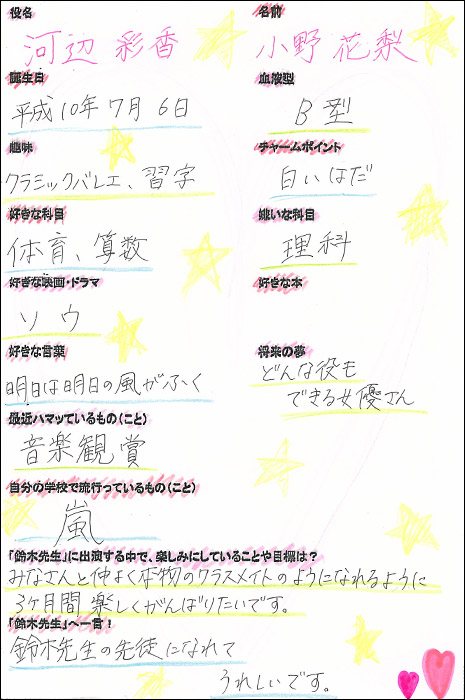 役名
名前
河辺 彩香
小野 花梨
誕生日
血液型
平成10年7月6日
B型
趣味
チャームポイント
クラシックバレエ、習字
白いはだ
好きな科目
嫌いな科目
体育、算数
理科
好きな映画・ドラマ
好きな本
ソウ
好きな言葉
将来の夢
明日は明日の風がふく
どんな役も
できる女優さん
最近ハマッているもの(こと)
音楽観賞
自分の学校で流行っているもの(こと)
嵐
「鈴木先生」に出演する中で、楽しみにしていることや目標は?
みなさんと仲よく本物のクラスメイトのようになれるように
3ヶ月間 楽しくがんばりたいです。
「鈴木先生」へ一言!
鈴木先生の生徒になれて
うれしいです。